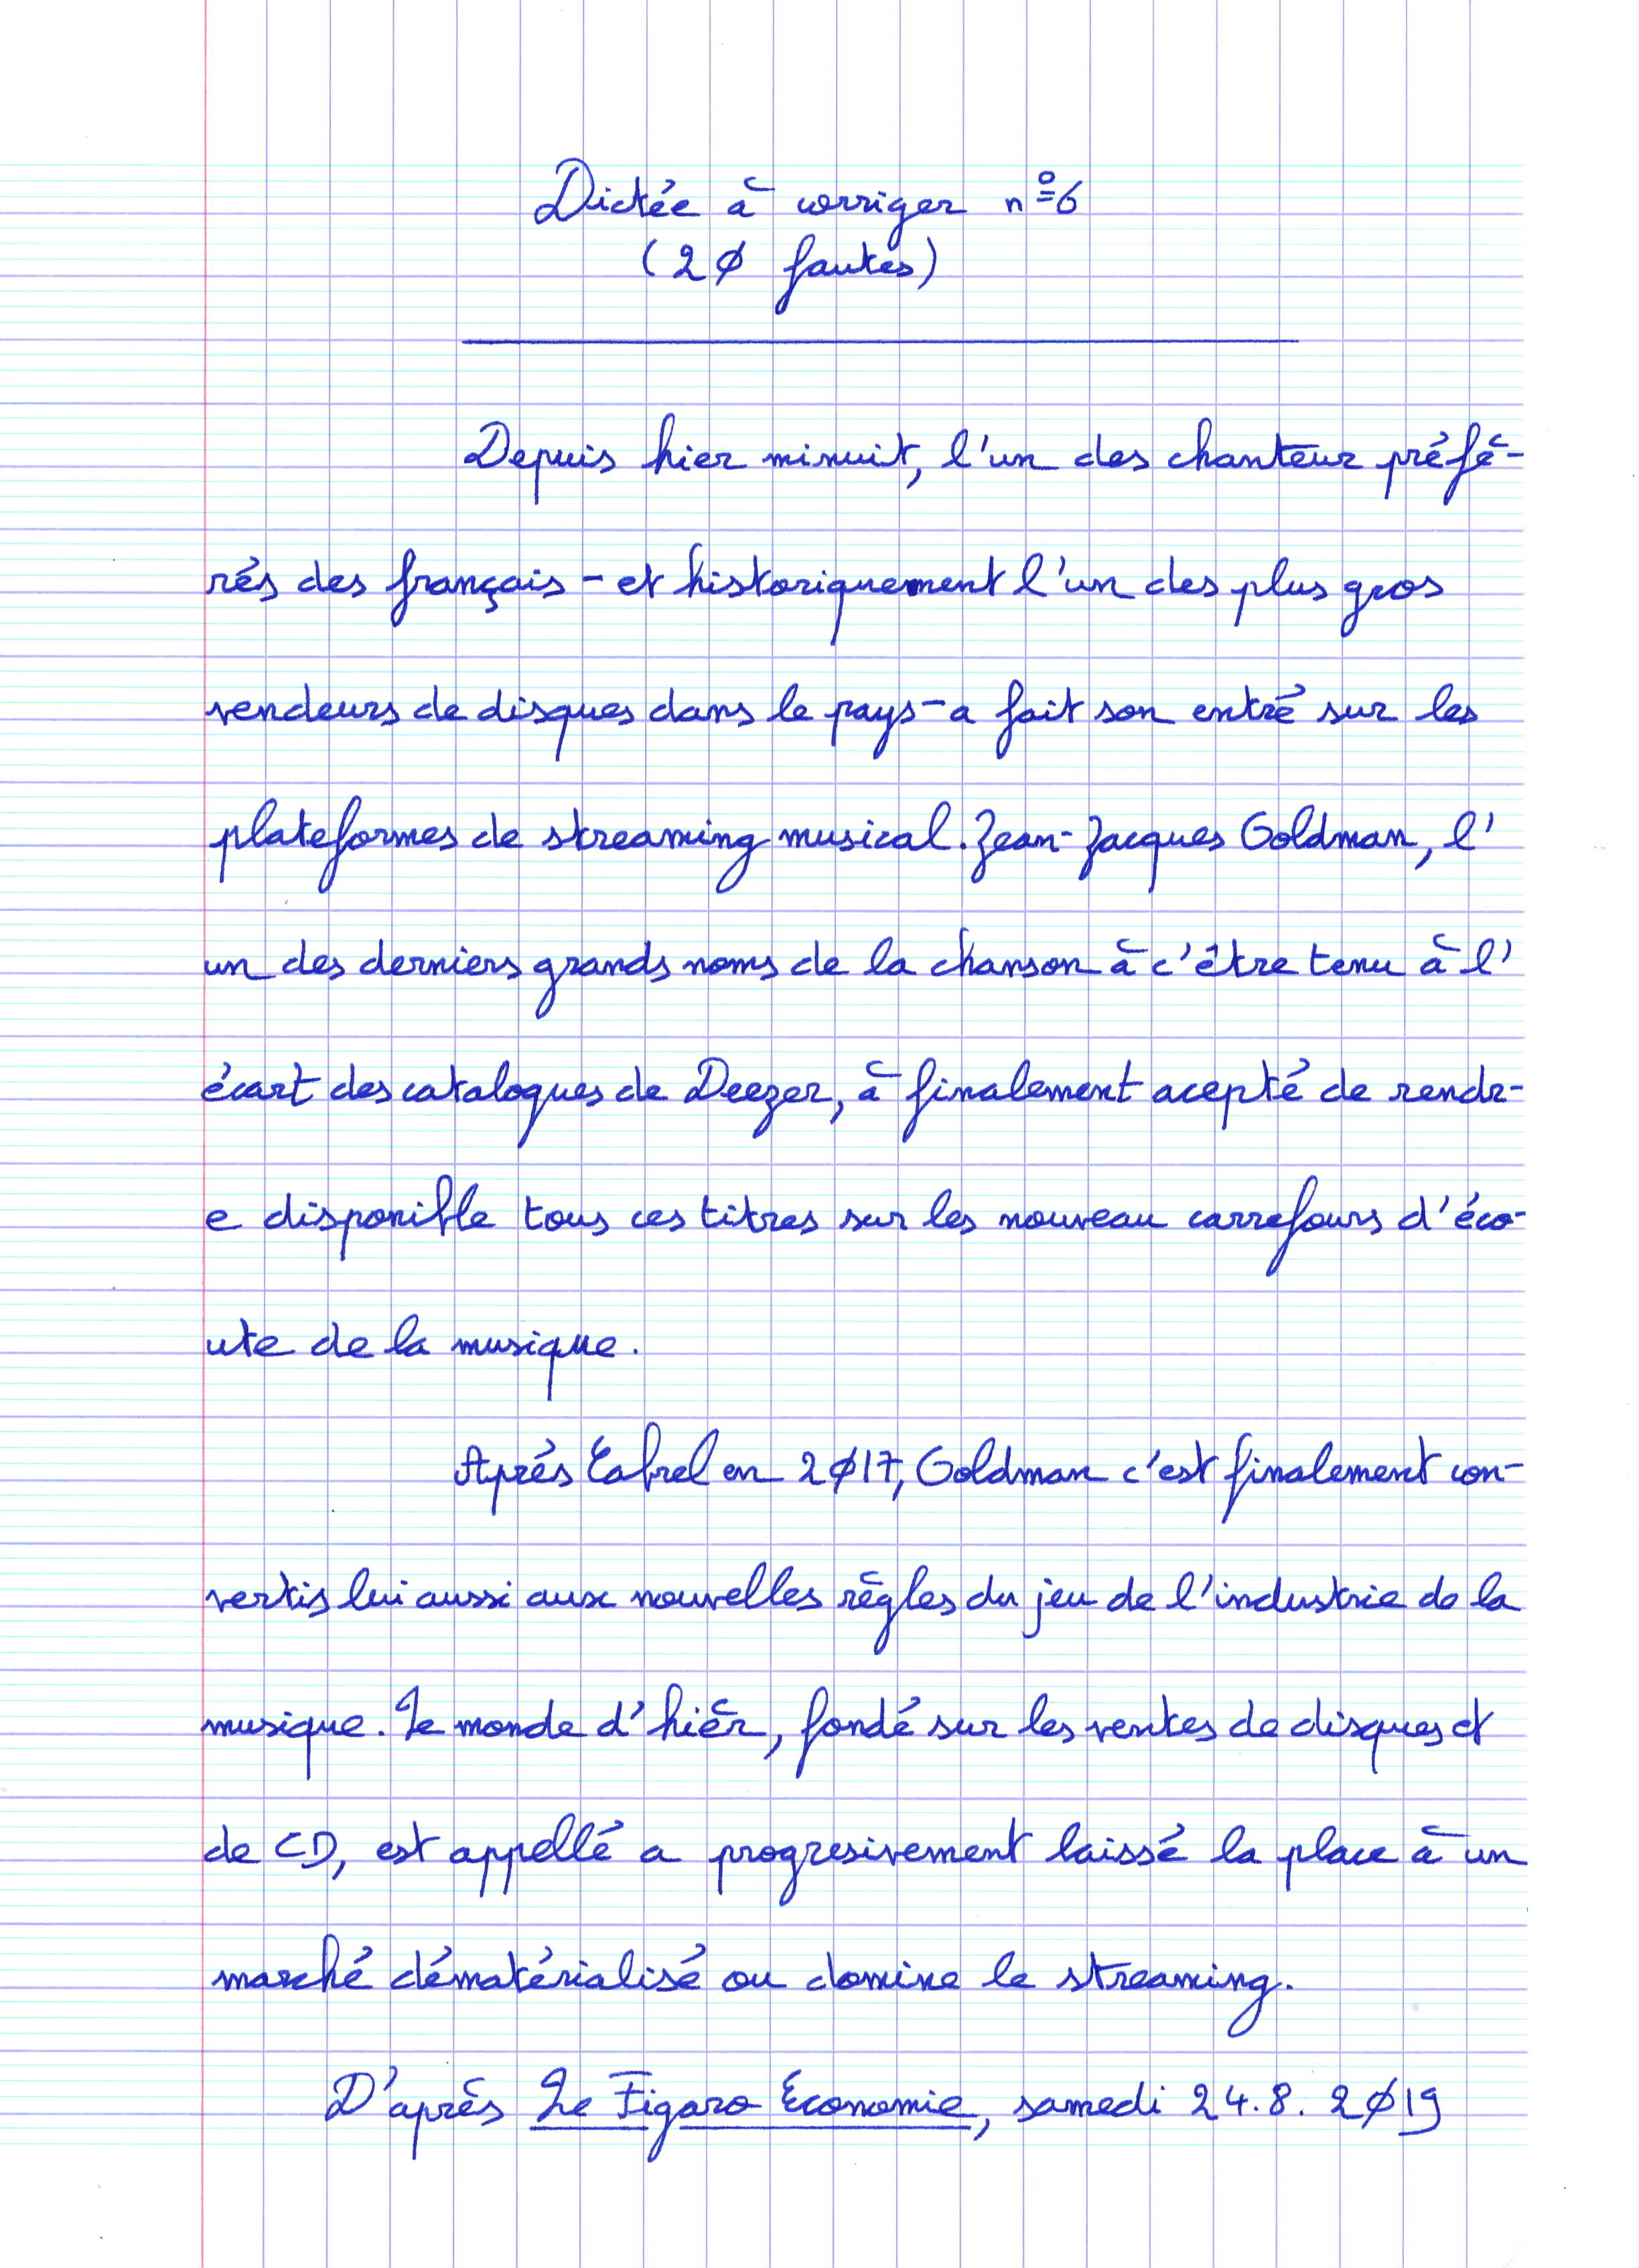 Dictée à corriger nº6
(20 fautes)
Depuis hier minuit, l'un des chanteur préfé-
rés des français - et historiquement l'un des plus gros
vendeurs de disques dans le pays - a fait son entré sur les
plateformes de streaming musical. Jean-Jacques Goldman, l'
un des derniers grands noms de la chanson à c'être tenu à l'
écart des catalogues de Deezer, à finalement acepté de rendr-
e disponible tous ces titres sur les nouveau carrefours d'éco-
ute de la musique.
Aprés Cabrel en 2017, Goldman c'est finalement con-
vertis lui aussi aux nouvelles règles du jeu de l'industrie de la
musique. Le monde d'hièr, fondé sur les ventes de disques et
de CD, est appellé a progresivement laissé la place à un
marché dématérialisé ou domine le streaming.
D'après Le Figaro Économie, samedi 24.8.2019